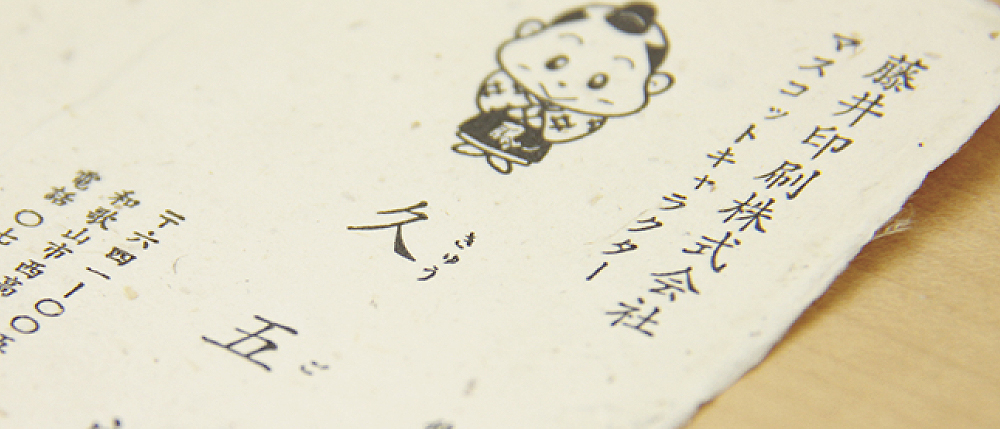 藤井印刷株式会社
マスコットキャラクター
久五
きゅうご
〒六四一ー〇〇
和歌山市西
電話〇七